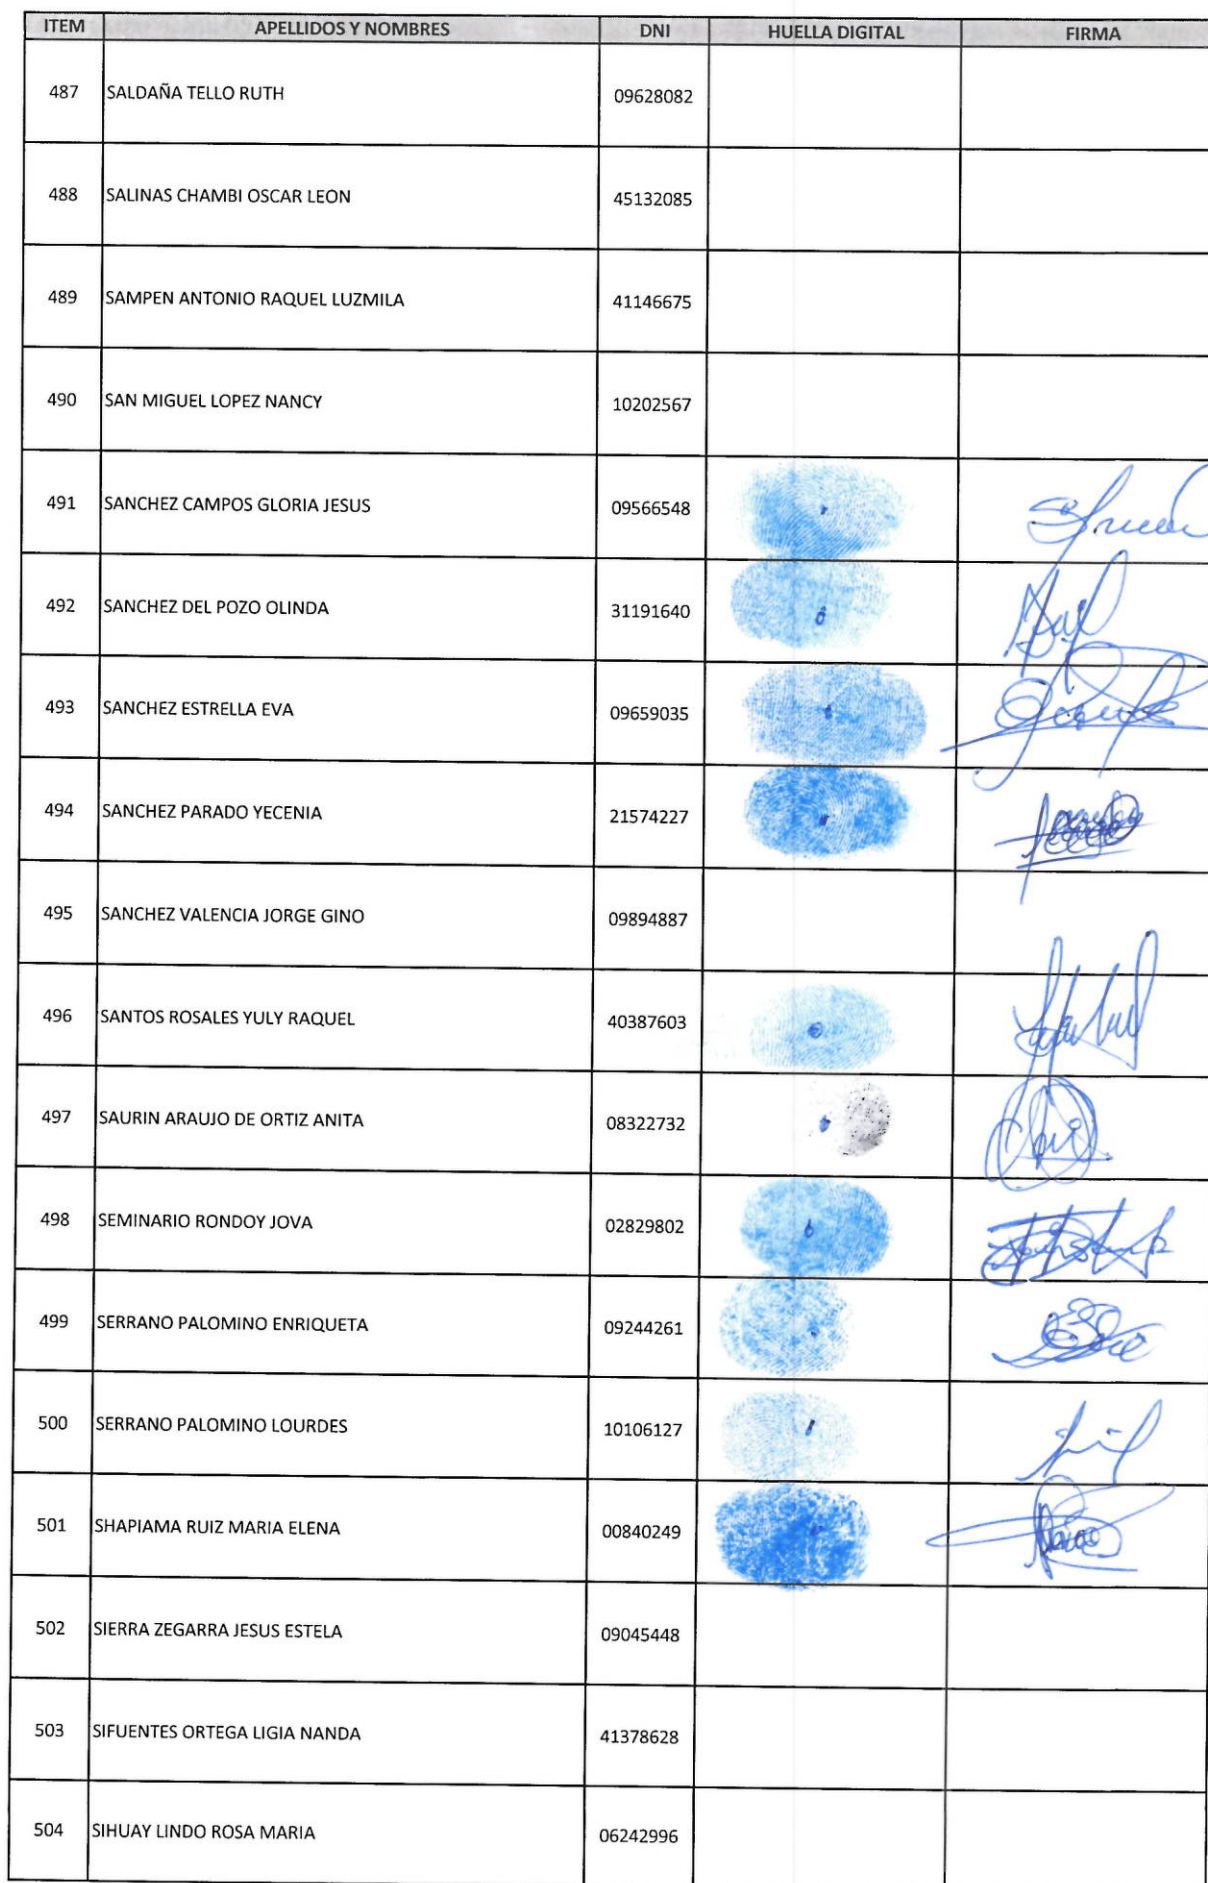 ITEM APELLIDOS Y NOMBRES DNI HUELLA DIGITAL FIRMA
487 SALDAÑA TELLO RUTH 09628082
488 SALINAS CHAMBI OSCAR LEON 45132085
489 SAMPEN ANTONIO RAQUEL LUZMILA 41146675
490 SAN MIGUEL LOPEZ NANCY 10202567
491 SANCHEZ CAMPOS GLORIA JESUS 09566548
492 SANCHEZ DEL POZO OLINDA 31191640
493 SANCHEZ ESTRELLA EVA 09659035
494 SANCHEZ PARADO YECENIA 21574227
495 SANCHEZ VALENCIA JORGE GINO 09894887
496 SANTOS ROSALES YULY RAQUEL 40387603
497 SAURIN ARAUJO DE ORTIZ ANITA 08322732
498 SEMINARIO RONDOY JOVA 02829802
499 SERRANO PALOMINO ENRIQUETA 09244261
500 SERRANO PALOMINO LOURDES 10106127
501 SHAPIAMA RUIZ MARIA ELENA 00840249
502 SIERRA ZEGARRA JESUS ESTELA 09045448
503 SIFUENTES ORTEGA LIGIA NANDA 41378628
504 SIHUAY LINDO ROSA MARIA 06242996